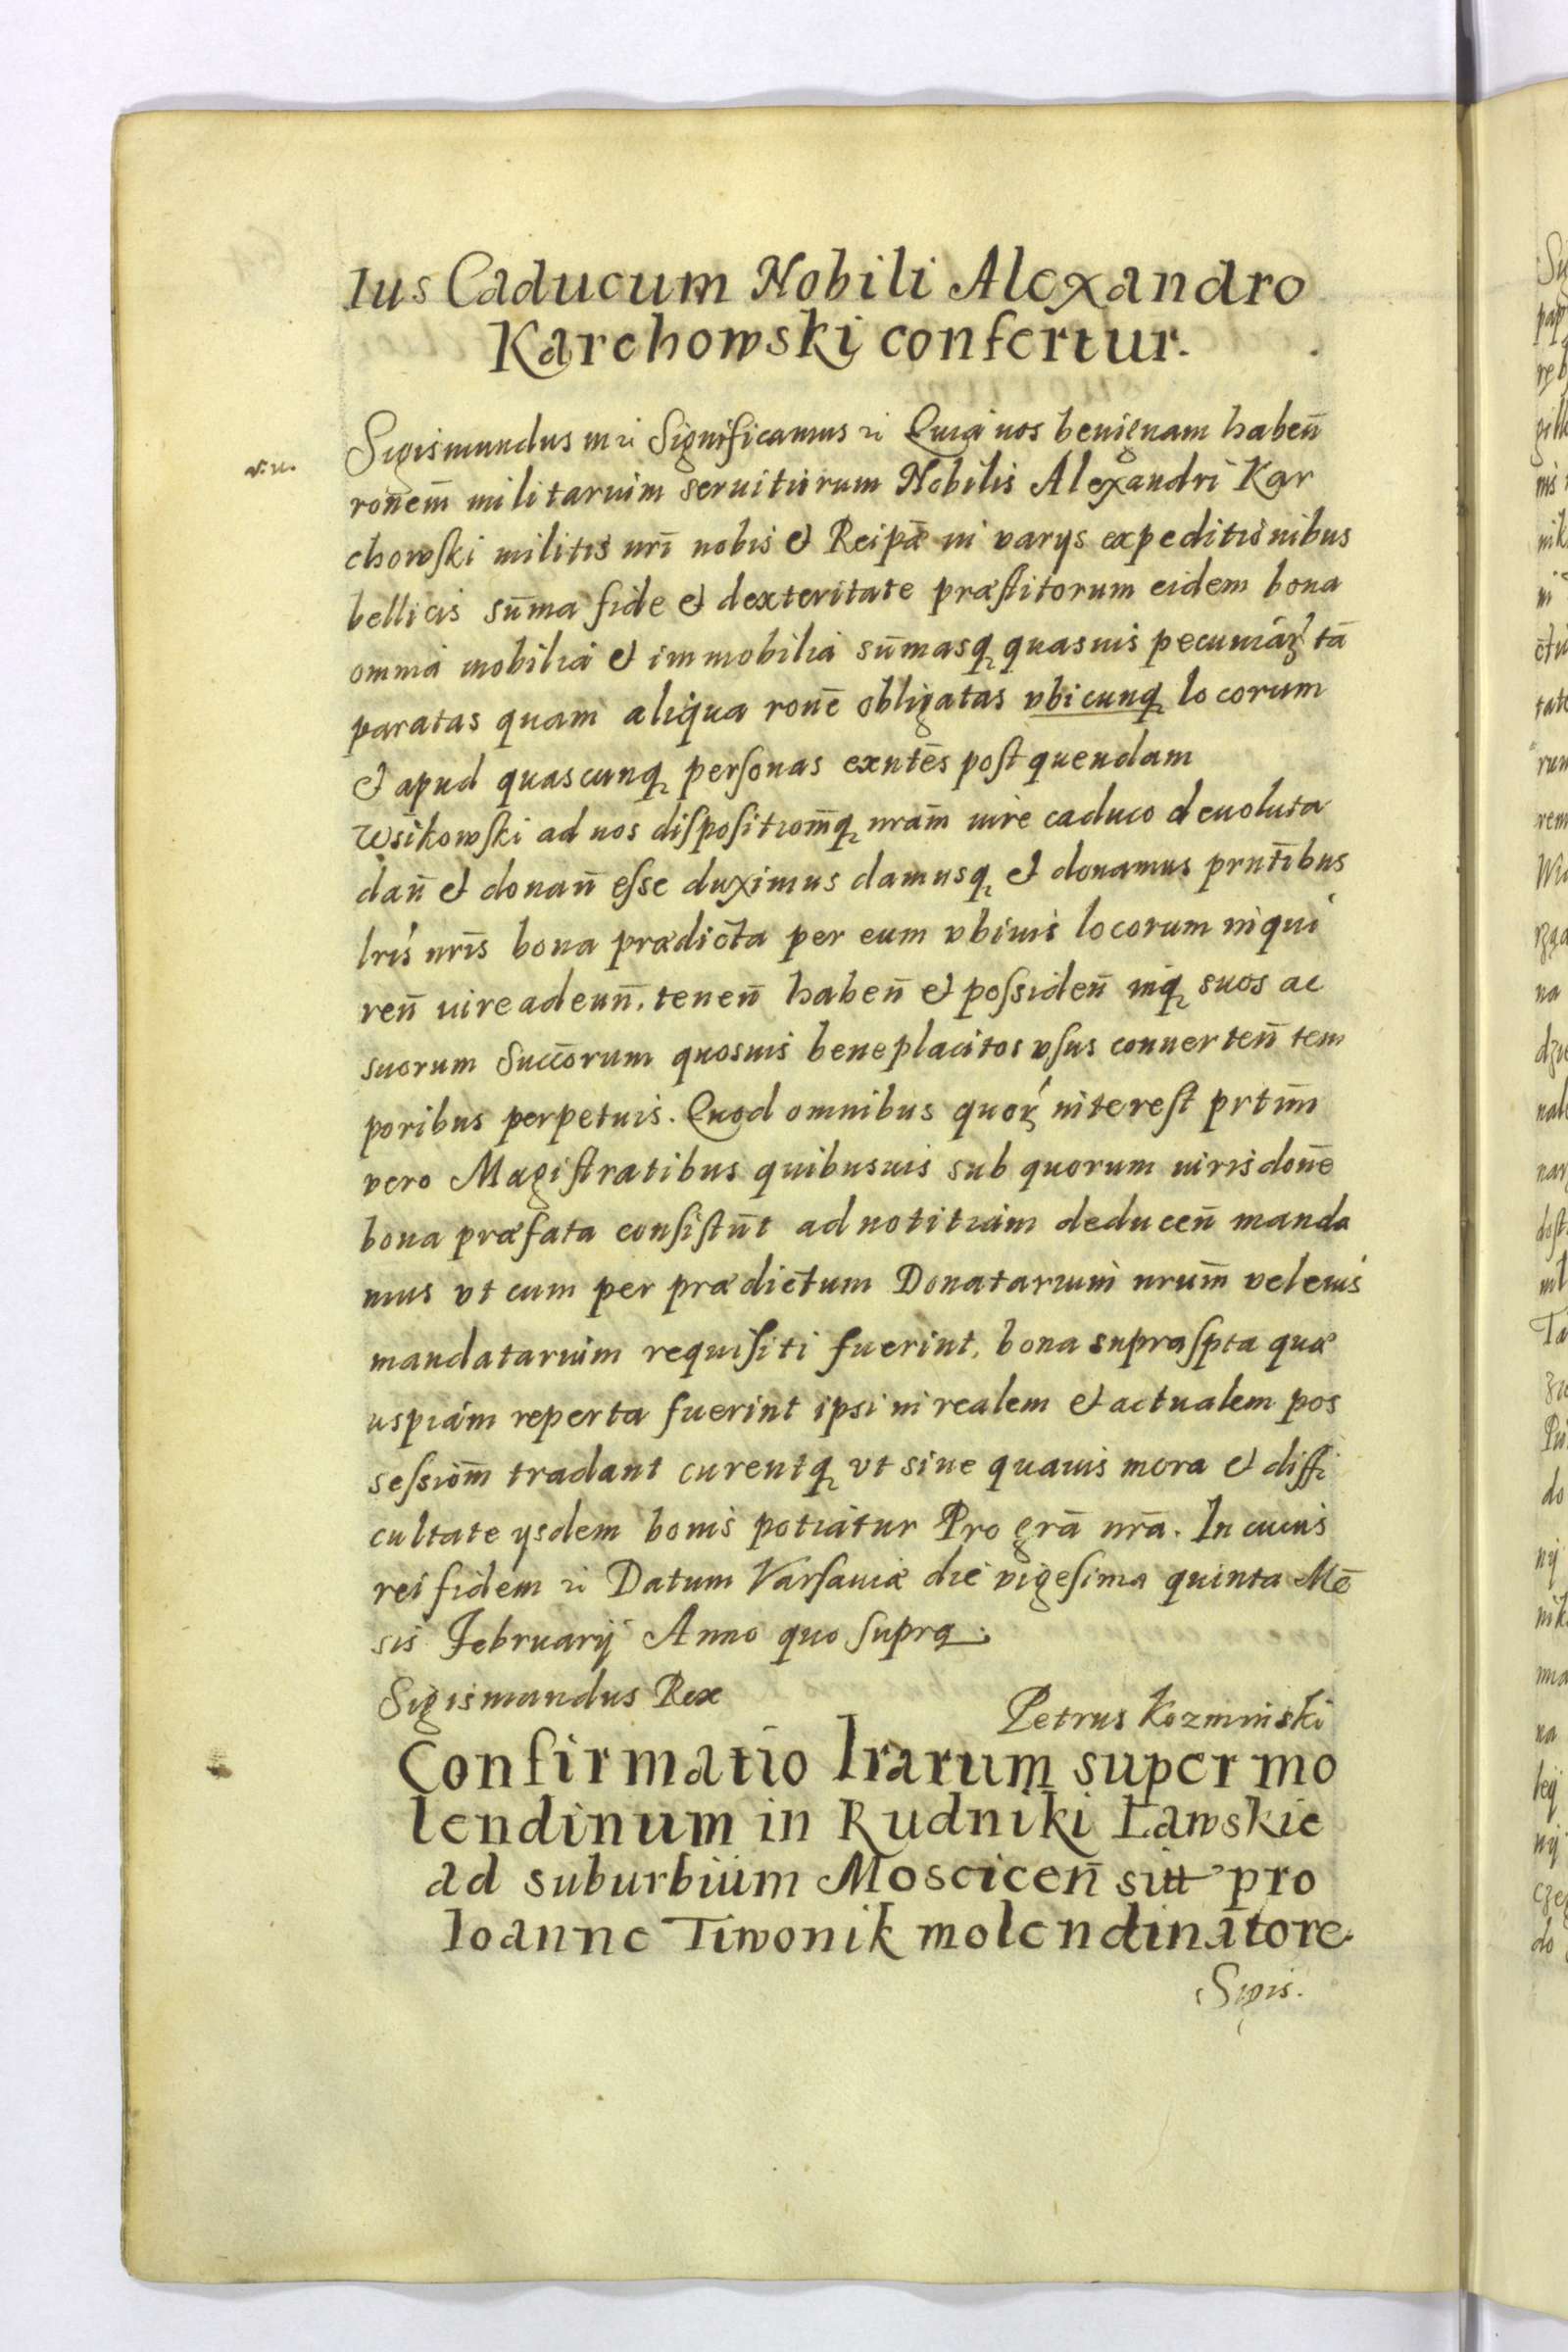 Ius Caducum Nobili Alexandro
Karchowski confertur.
Sigismundus III etc Significamus etc Quia nos benignam habeñ
rõnem militarium seruitiorum Nobilis Alexandri Kar
chowski militis nrĩ nobis et Reipæ in varijs expeditionibus
bellicis sum̃a fide et dexteritate præstitorum eidem bona
omnia mobilia et immobilia sum̃asq quasuis pecuniaꝝ tã
paratas quam aliqua rõne obligatas vbicunq locorum
et apud quascunq personas exñtes post quendam
Wsikowski ad nos dispositiom̃q nrãm iure caduco deuoluta
dañ et donañ esse duximus damusq et donamus prñtibus
lris nrĩs bona prædicta per eum vbiuis locorum inqui
reñ iure adeuñ, teneñ habeñ et possideñ inq suos ac
suorum Succõrum quosuis beneplacitos vsus conuerteñ tem
poribus perpetuis. Quod omnibus quoꝝ interest prtĩm
vero Magistratibus quibusuis sub quorum iurisdoñe
bona præfata consistũt ad notitiam deduceñ manda
mus vt cum per prædictum Donatarium nrũm vel eius
mandatarium requisiti fuerint, bona suprasp̃ta quæ
uspiam reperta fuerint ipsi in realem et actualem pos
sessiom̃ tradant curentq vt sine quauis mora et diffi
cultate ijsdem bonis potiatur Pro grã nrã. In cuius
rei fidem etc Datum Varsauiæ die vigesima quinta Mẽ
sis Februarij Anno quo supra.
Sigismundus Rex
Petrus Kozminski
Confirmatio lrarum super mo
lendinum in Rudniki Ławskie
ad suburbium Moscicen̄ sitt pro
Ioanne Tiwonik molendinatore.
Sigis.